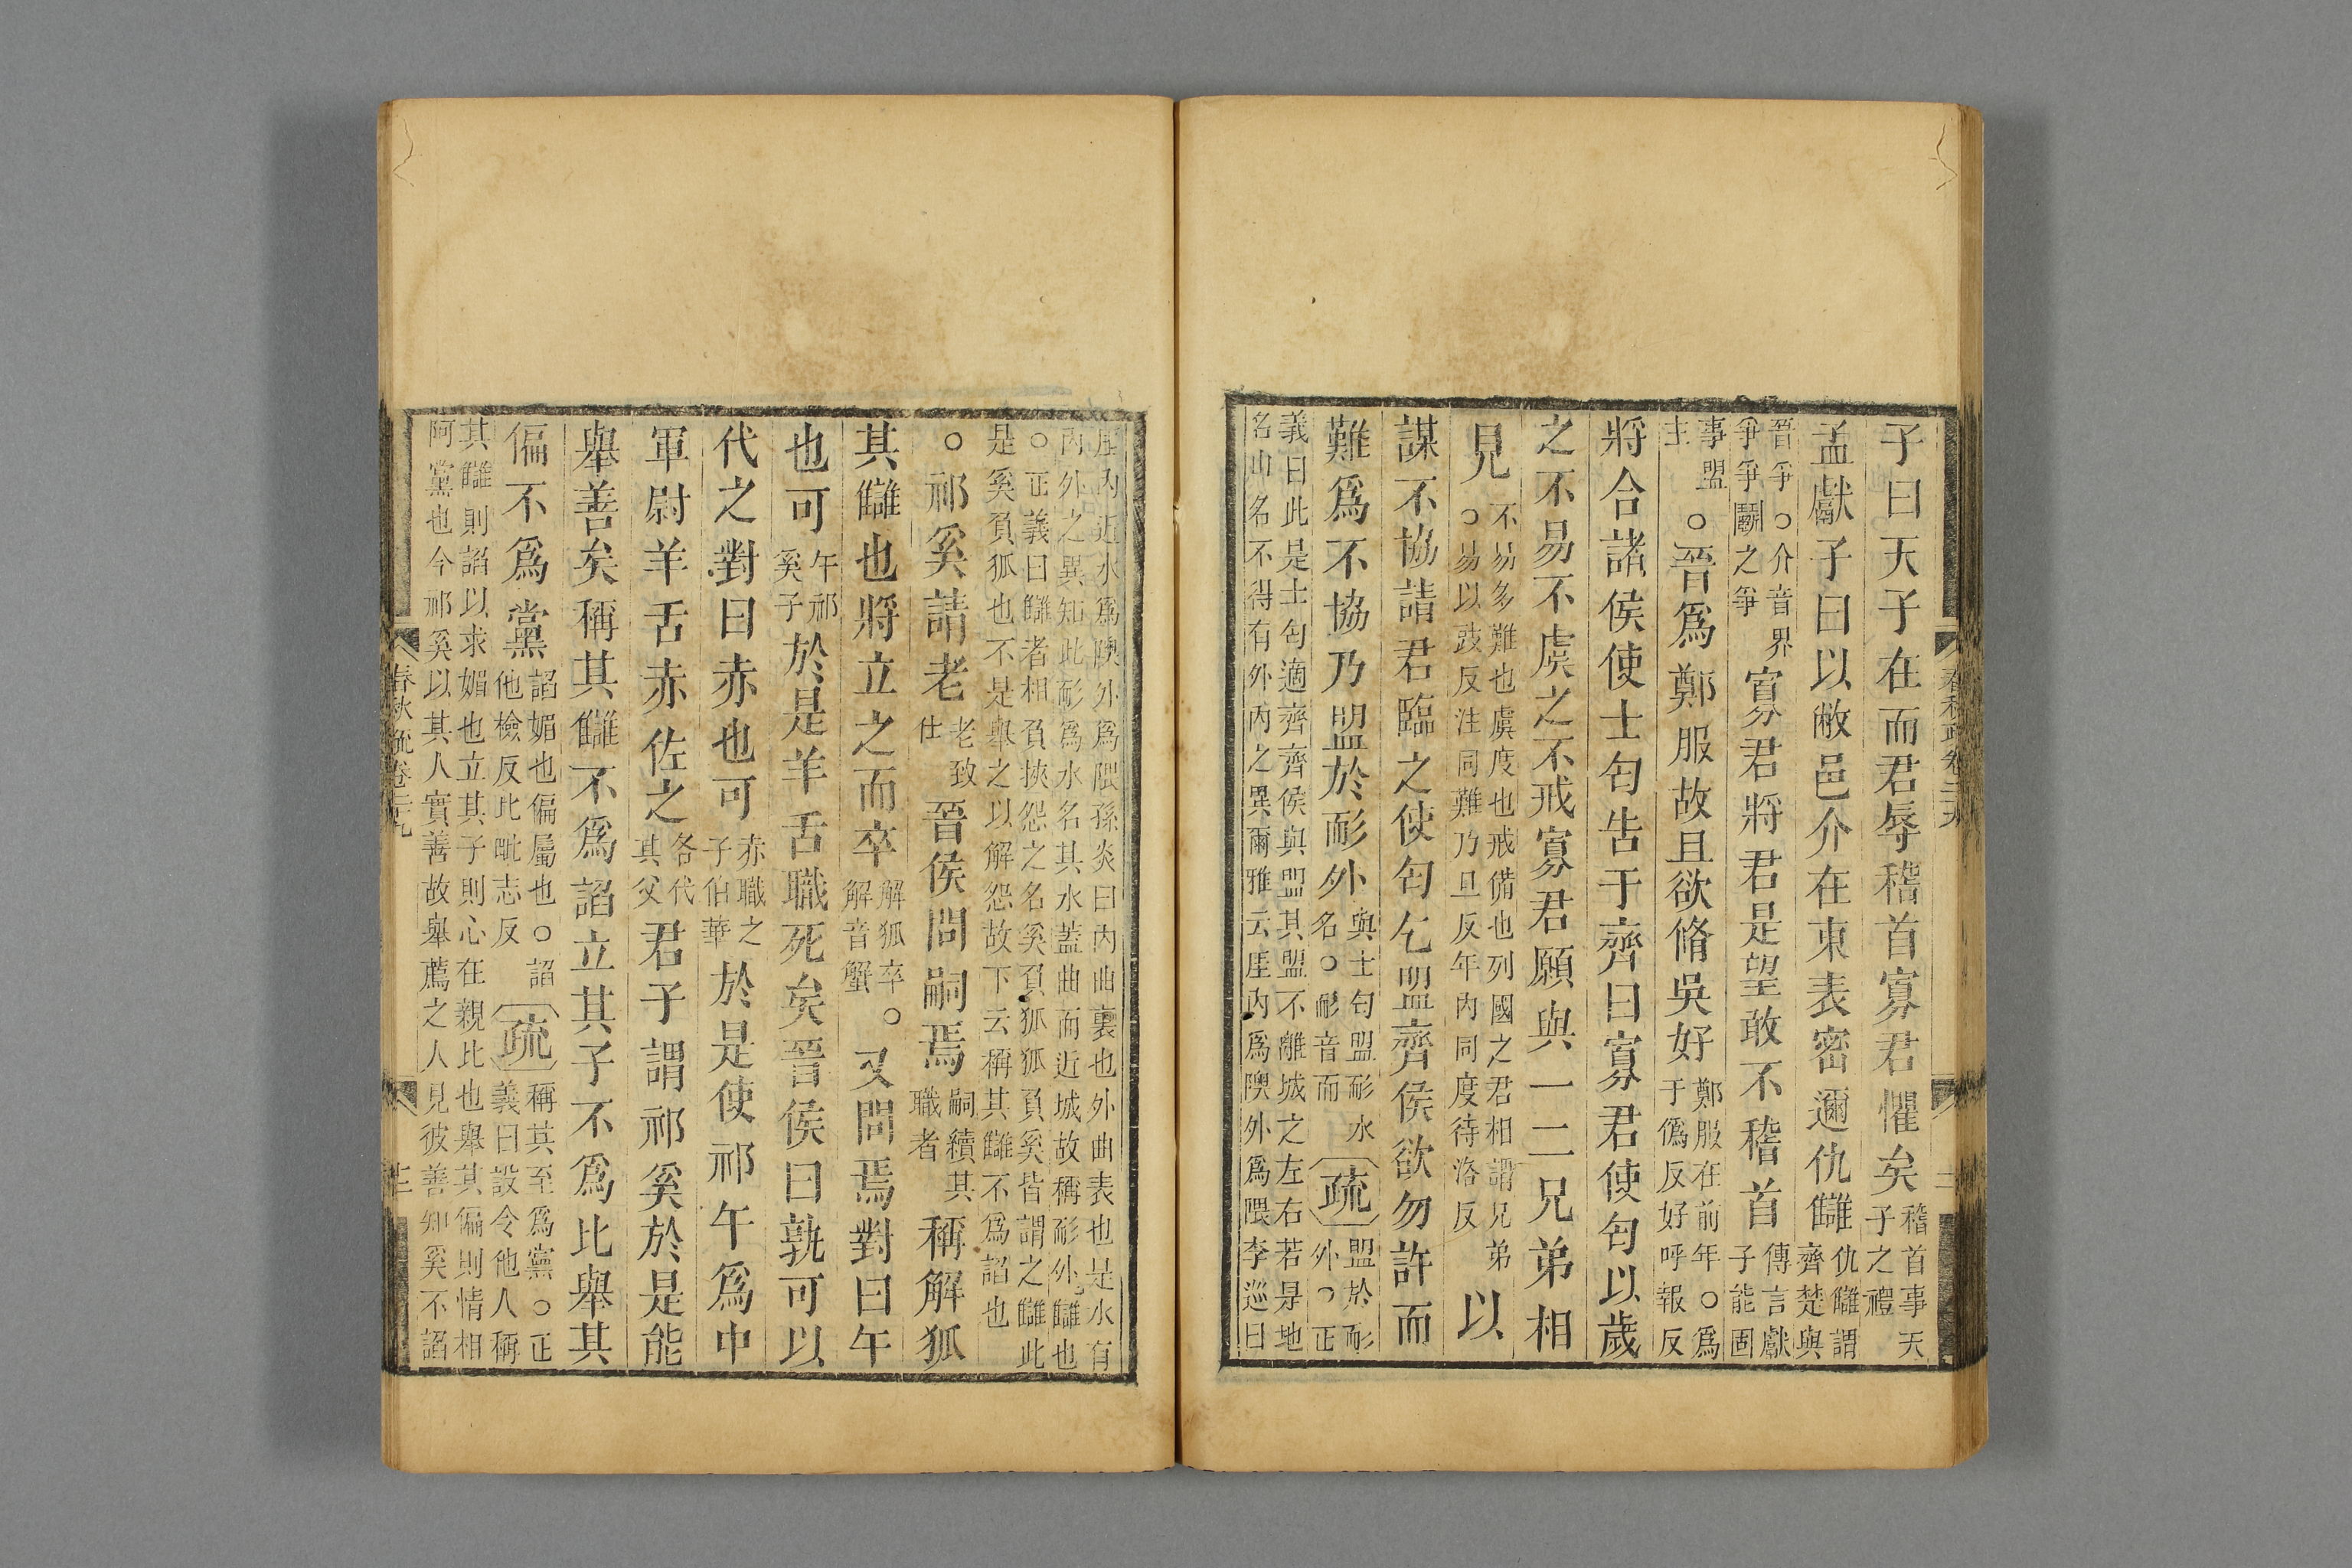 子曰天子在而君辱稽首寡君懼矣稽首事天子之禮
孟獻子曰以敝邑介在東表密邇仇讎仇讎謂齊楚與
晉爭○介音界爭爭鬭之爭寡君將君是望敢不稽首傳言獻子能固
事盟主○晉爲鄭服故且欲脩吳好鄭服在前年○爲于僞反好呼報反
將合諸侯使士匄告于齊曰寡君使匄以歲
之不易不虞之不戒寡君願與一二兄弟相
見不易多難也虞度也戒備也列國之君相謂兄弟○易以豉反注同難乃旦反年內同度待洛反以
謀不協請君臨之使匄乞盟齊侯欲勿許而
難爲不協乃盟於耏外與士匄盟耏水名○耏音而疏盟於耏外○正
義曰此是士匄適齊齊侯與盟其盟不離城之左右若是地
名山名不得有外內之異爾雅云厓內爲隩外爲隈李巡曰
厓內近水爲隩外爲隈孫炎曰內曲裏也外曲表也是水有
內外之異知此耏爲水名其水蓋曲而近城故稱耏外讎也
○正義曰讎者相負挾怨之名奚負狐狐負奚皆謂之讎此
是奚負狐也不是舉之以解怨故下云稱其讎不爲諂也
○祁奚請老老致仕晉侯問嗣焉嗣續其職者稱解狐
其讎也將立之而卒解狐卒○解音蟹又問焉對曰午
也可午祁奚子於是羊舌職死矣晉侯曰孰可以
代之對曰赤也可赤職之子伯華於是使祁午爲中
軍尉羊舌赤佐之各代其父君子謂祁奚於是能
舉善矣稱其讎不爲諂立其子不爲比舉其
偏不爲黨諂媚也偏屬也○諂他檢反比毗志反疏稱其至爲黨○正義曰設令他人稱
其讎則諂以求媚也立其子則心在親比也舉其偏則情相
阿黨也今祁奚以其人實善故舉薦之人見彼善知奚不諂
春秋疏卷二十九